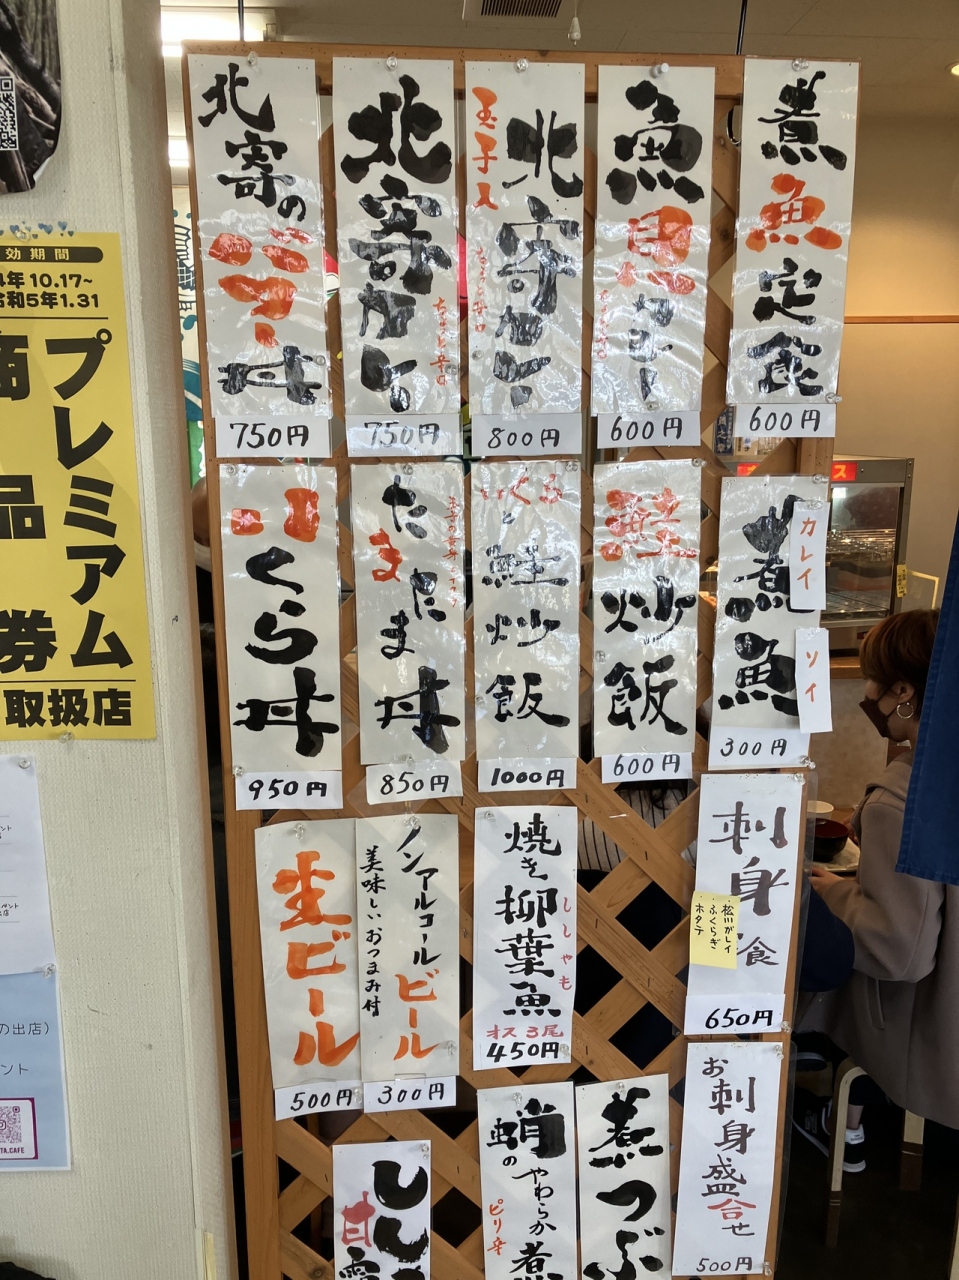 煮魚定食
600円
魚目カレー
600円
玉子入
北寄カレー
ちょっと辛口
800円
北寄カレー
ちょっと辛口
750円
北寄の
丼
750円
煮魚
カレイ
ソイ
300円
鮭炒飯
600円
いくらと鮭炒飯
1000円
たまたま丼
850円
いくら丼
950円
刺身定食
松川がレイ
ふくらぎ
ホタテ
650円
焼き柳葉魚
ししゃも
オス3尾
450円
ノンアルコールビール
美味しいおつまみ付
300円
生ビール
500円
お刺身盛合せ
500円
煮つぶ
蛸の
やわらか煮
ピリ辛
甘
効期間
年10.17~
令和5年1.31
プレミアム
商品券
取扱店
の出店)
ント
TA.CAFE